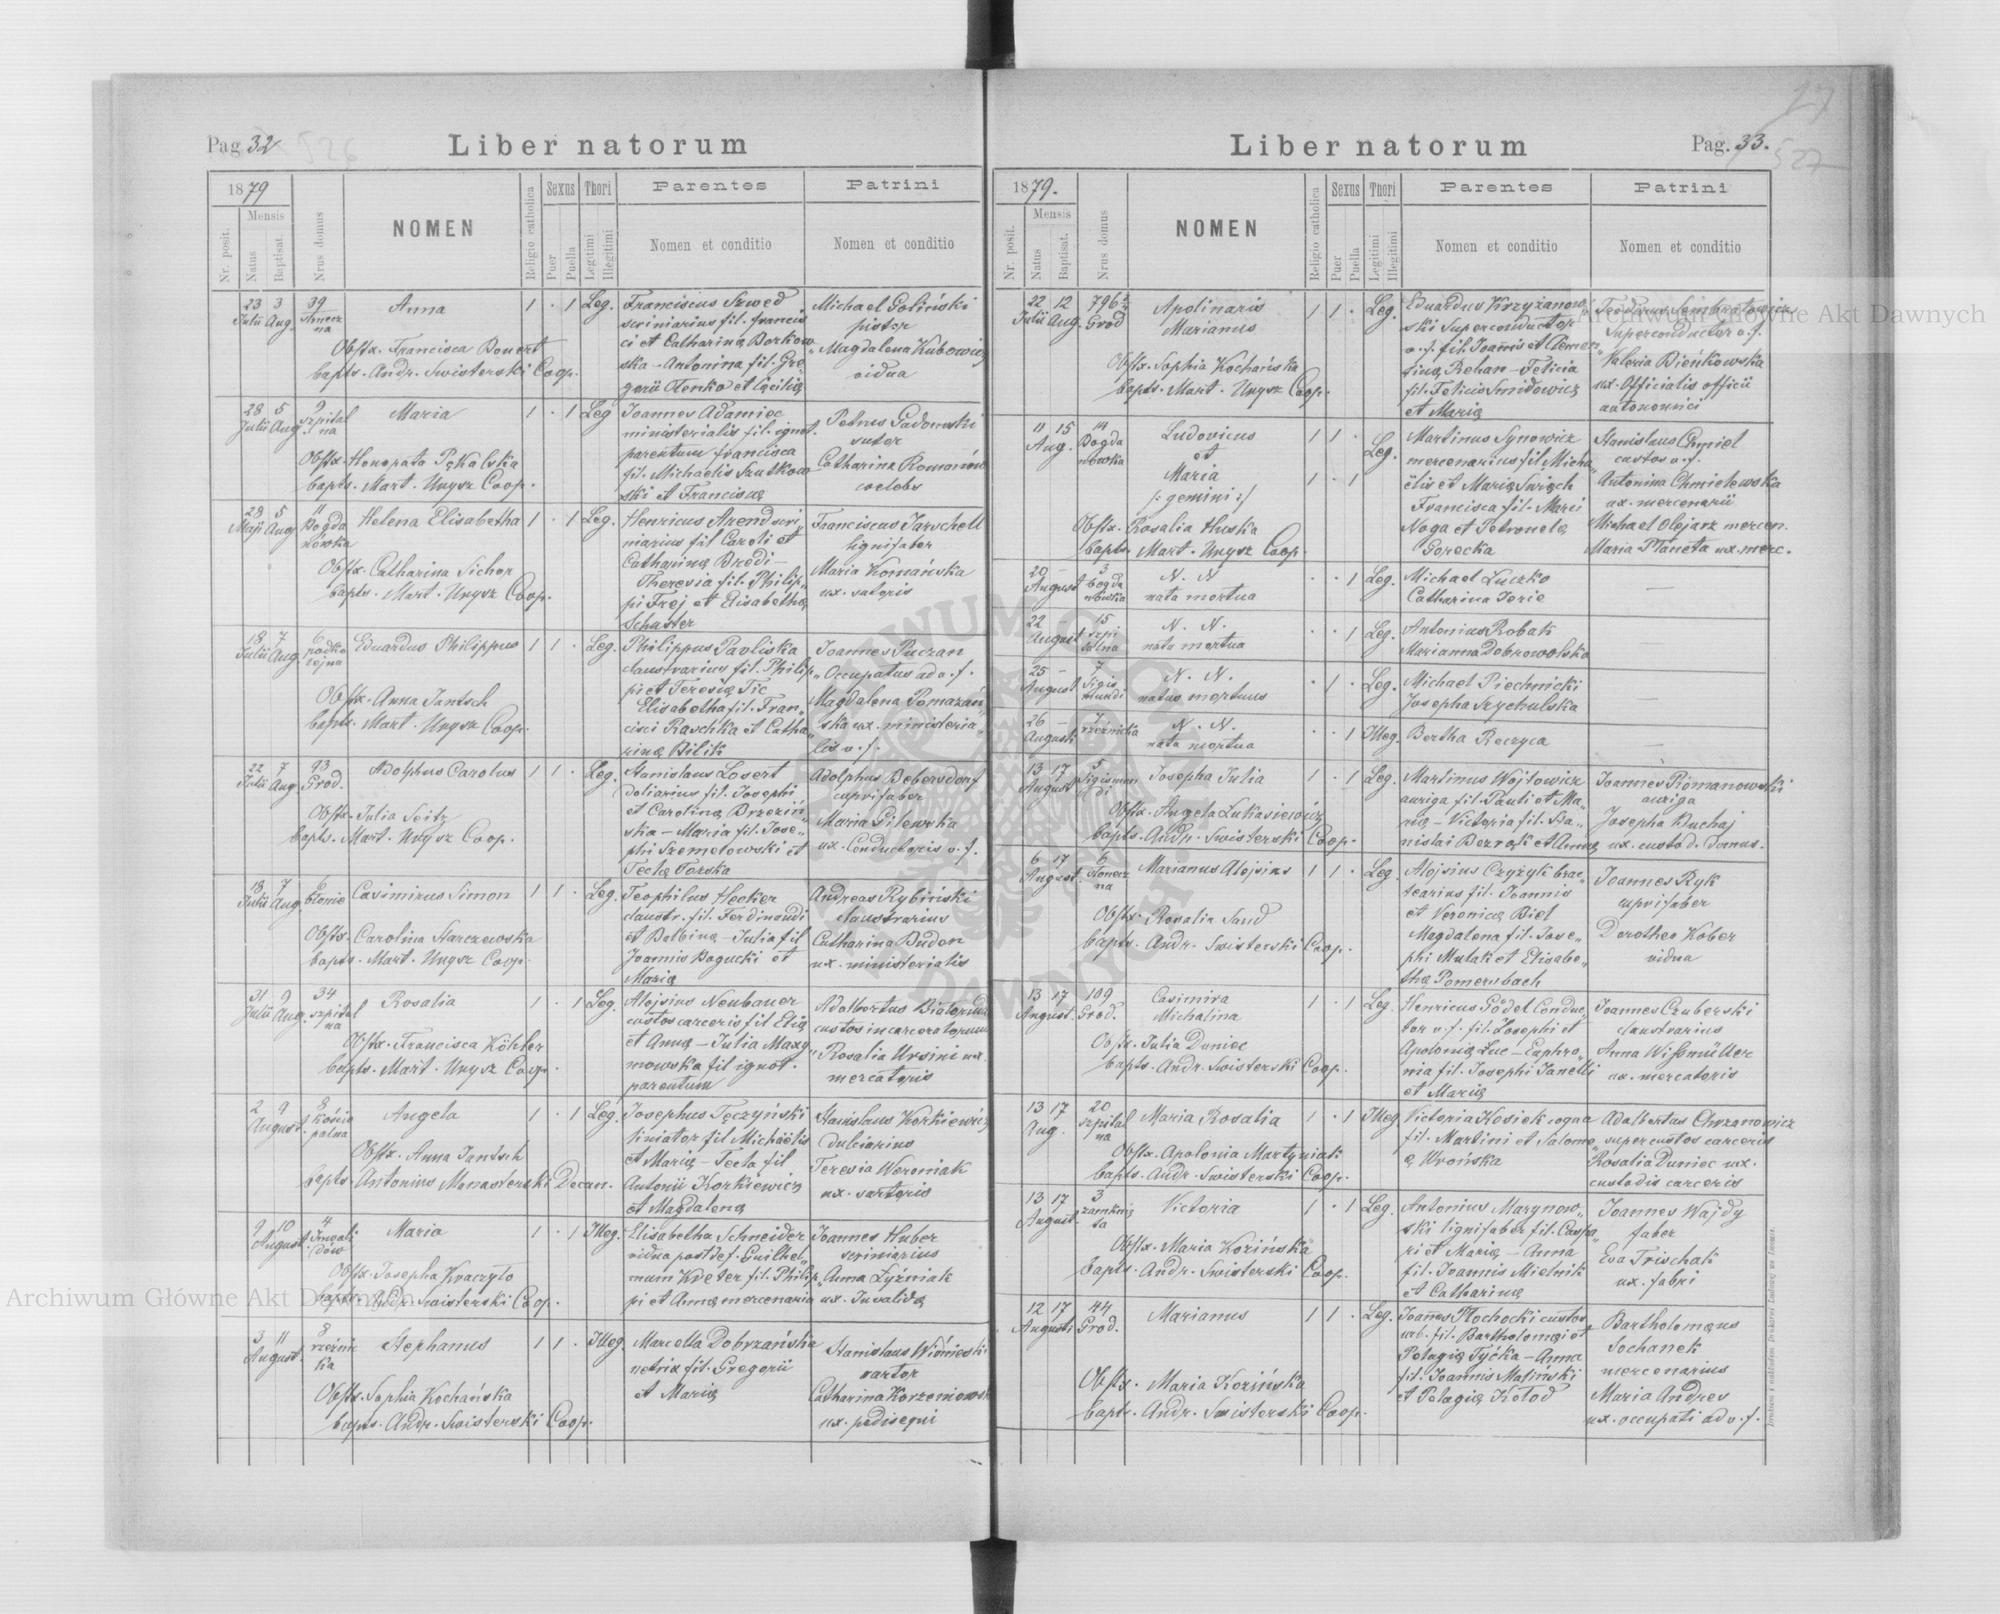 Pag 32
Liber natorum
1879
Mensis
Nr. posit.
Natus
Baptisat.
Nrus domus
NOMEN
Religio catholica
Sexus
Puer
Puella
Thori
Legitimi
Illegitimi
Parentes
Nomen et conditio
Patrini
Nomen et conditio
23 Julii 3 Aug. 39
Anna
1 · 1 Leg.
Obstx. Francisca
bapts. Andr. Swisterski Coop.
Franciscus Szwed
scriniarius fil. Francis
ci et Catharinę Borkow„
ska – Antonina fil. Gre
gorii Olenko et Cęcilię
Michael Goliński
pistor
Magdalena Kubowicz
vidua
28 Julii 5 Aug. 9 szpital na
Maria
1 · 1 Leg
Obstx. Honorata Pękalska
bapts. Mart. Unysz Coop.
Joannes Adamiec
ministerialis fil. ignot.
parentum Francisca
fil. Michaelis Szutkow
ski et Franciscę
Petrus Gadomski
sutor
Catharina Romanów
coelebs
28 Maji 5 Aug. 11 Bogda nówka
Helena Elisabetha
1 · 1 Leg.
Obstx. Catharina Sichor
bapts. Mart. Unysz Coop.
Henricus Arend scri„
niarius fil Caroli et
Catharinę Bredi –
Theresia fil. Philip„
pi Frej et Elisabethę
Schaster
Franciscus Jarschell
lignifaber
Maria Komańska
ux. sutoris
18 Julii 7 Aug. 6
Eduardus Philippus
1 1 · Leg.
Obstx. Anna Jantsch
bapts. Mart. Unysz Coop.
Philippus Pavliska
claustrarius fil. Philip„
pi et Teresię Tic
Elisabetha fil. Fran„
cisci Raschka et Catha„
rinę Bilik
Joannes Puczan
Occupatus ad v. f.
Magdalena Pomazań„
ska ux. ministeria„
lis v. f.
22 Julii 7 Aug. 93 Grod.
Adolphus Carolus
1 1 · Leg.
Obstx. Julia Seitz
bapts. Mart. Unysz Coop.
Stanislaus Losert
doliarius fil. Josephi
et Carolinę Brzeziń„
ska – Maria fil. Jose„
phi Szemetowski et
Teclę Torska
Adolphus Bebersdorf
cuprifaber
Maria Pilewska
ux. Conductoris v. f.
18 Julii 7 Aug. 6 błonie
Casimirus Simon
1 1 · Leg.
Obstx. Carolina Starczewska
bapts. Mart. Unysz Coop.
Teophilus Hecker
claustr. fil. Ferdinandi
et Balbinę – Julia fil
Joannis Bogucki et
Marię
Andreas Rybiński
claustrarius
Catharina Budon
ux. ministerialis
31 Julii 9 Aug. 34 szpital na
Rosalia
1 · 1 Leg.
Obstx. Francisca Köhler
bapts. Mart. Unysz Coop.
Alojsius Neubauer
custos carceris fil Elię
et Annę – Julia Maxy
mowska fil ignot.
parentum
Adalbertus
custos incarceratorum
Rosalia Ursini ux.
mercatoris
2 9 August. 8
Angela
1 · 1 Leg.
Obstx. Anna Jantsch
bapts. Antonius Monasterski Decan.
Josephus Tęczyński
liniator fil Michäelis
et Marię – Tecla fil
Antonii Korkiewicz
et Magdalenę
Stanislaus Korkiewicz
dulciarius
Teresia Weroniak
ux. sartoris
9 10 August. 4 Inwali dów
Maria
1 · 1 Illeg.
Obstx. Josepha Kraczyło
bapts. Andr. Swisterski Coop.
Elisabetha Schneider
vidua post def. Guilhel„
mum Kreter fil. Philip„
pi et Annę mercenaria
Joannes Huber
scriniarius
Anna Łyźniak
ux. Invalidę
3 11 August. 8 rzeźnic ka
Stephanus
1 1 · Illeg.
Obstx. Sophia Kochańska
bapts. Andr. Swisterski Coop.
Marcella Dobrzańska
netrix fil. Gregorii
et Marię
Stanislaus Wiśnieski
sartor
Catharina Korzeniowska
ux. pedisequi
27
527
Liber natorum
Pag. 33.
1879.
Mensis
Nr. posit.
Natus
Baptisat.
Nrus domus
NOMEN
Religio catholica
Sexus
Puer
Puella
Thori
Legitimi
Illegitimi
Parentes
Nomen et conditio
Patrini
Nomen et conditio
22 Julii 12 Aug. 796 Grod
Apolinaris
Marianus
1 1 · Leg.
Obstx. Sophia Kochańska
bapts. Mart. Unysz Coop.
Eduardus Krzyżanow„
ski Superconductor
v. f. fil. Joannis et Clemen„
tinę Rehan – Felicia
fil. Felicis Smidowicz
et Marię
Teodorus Sembratowicz
Superconductor v. f.
Valeria Bieńkowska
ux. Officialis officii
autonomici
11 15 Aug. 14 Bogda nówka
Ludovicus
et
Maria
/: gemini :/
1 1 ·
1 · 1
Leg.
Obstx. Rosalia Huska
bapts. Mart. Unysz Coop.
Martinus Synowicz
mercenarius fil Micha„
ëlis et Marię Swięch
Francisca fil. Marci
Noga et Petronelę
Gorecka
Stanislaus Chmiel
custos v. f.
Antonina Chmielewska
ux. mercenarii
Michael Olejarz mercen.
Maria Planeta ux. merc.
20 – August 3 bogda nówka
N. N
nata mortua
· · 1 Leg.
Michael Luczko
Catharina Jorie
22 August 15 szpi talna
N. N.
nata mortua
· · 1 Leg.
Antonius Robak
Marianna Dobrowolska
25 – August 7 Sigis mundi
N. N.
natus mortuus
· 1 · Leg.
Michael Piechnicki
Josepha Szychulska
26 – August 7 rzeźnicka
N. N.
nata mortua
· · 1 Illeg.
Bertha Reczyca
13 17 August 5 Sigismun di
Josepha Julia
1 · 1 Leg.
Obstx. Angela Łukasiewicz
bapts. Andr. Swisterski Coop.
Martinus Wojtowicz
auriga fil. Pauli et Ma„
rię – Victoria fil. Sta„
nislai Bezrąk et Annę
Joannes Romanowski
auriga
Josepha Buchaj
ux. custod. domus.
6 17 August. 6 słonecz na
Marianus Alojsius
1 1 · Leg.
Obstx. Rosalia Sand
bapts. Andr. Swisterski Coop.
Alojsius Czyżyk brac„
tearius fil. Joannis
et Veronicę Biel
Magdalena fil. Jose„
phi Mulak et Elisabe„
thę Pomersbach
Joannes Ryk
cuprifaber
Dorothea Kober
vidua
13 17 August. 109 Grod.
Casimira
Michalina
1 · 1 Leg.
Obstx. Julia Duniec
bapts. Andr. Swisterski Coop.
Henricus Gödel Conduc„
tor v. f. fil. Josephi et
Apolonię Luc – Euphro„
nia fil. Josephi Janelli
et Marię
Joannes Czuberski
claustrarius
Anna Wissmüller
ux. mercatoris
13 17 Aug. 20 szpital na
Maria Rosalia
1 · 1 Illeg.
Obstx. Apolonia Martyniak
bapts. Andr. Swisterski Coop.
Victoria Kosiek
fil. Martini et Salome„
ę Wrońska
Adalbertus Chrzanowicz
supercustos carceris
Rosalia Duniec ux.
custodis carceris
13 17 August. 3 zamknię ta
Victoria
1 · 1 Leg.
Obstx. Maria Kozińska
bapts. Andr. Swisterski Coop.
Antonius Marynow„
ski lignifaber fil. Caspa„
ri et Marię – Anna
fil. Joannis Mielnik
et Catharinę
Joannes Wajdy
faber
Eva Trischak
ux. fabri
12 17 Augusti 44 Grod.
Marianus
1 1 · Leg.
Obstx. Maria Kozińska
bapts. Andr. Swisterski Coop.
Joannes Płochocki custos
urb. fil. Bartholomęi et
Pelagię Tyćka – Anna
fil. Joannis Maliński
et Pelagię Kołod
Bartholomęus
Sochanek
mercenarius
Maria Andres
ux. occupati ad v. f.
Archiwum Główne Akt Dawnych
Archiwum Główne Akt Dawnych